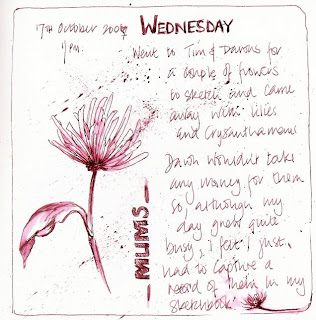 17TH October 200
7pm.
WEDNESDAY
Went to Tim & Dawns for
a couple of flowers
to sketch and came
away with lilies
and Crysanthamems
Dawn wouldn't take
any money for them
so, although my
day grew quite
busy, I felt I just
had to capture a
record of them in my
sketchbook.
MUMS